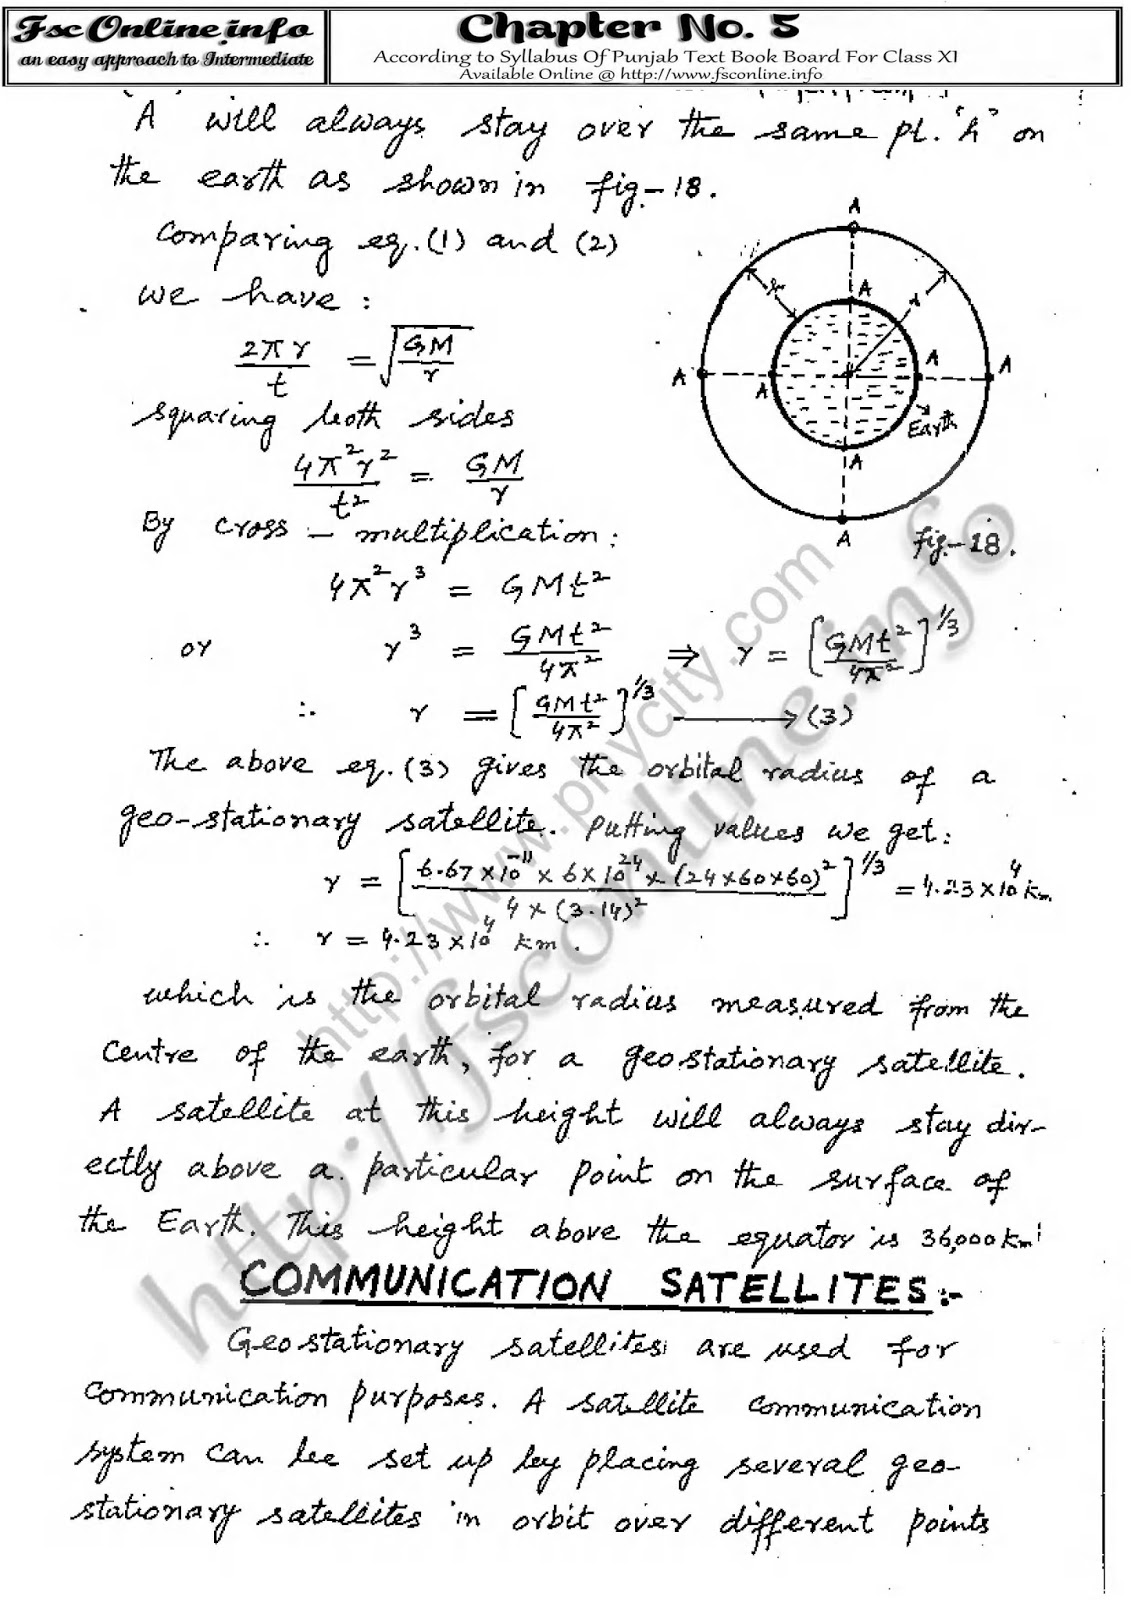 Fsc Online.info
an easy approach to Intermediate
Chapter No. 5
According to Syllabus Of Punjab Text Book Board For Class XI
Available Online @ http://www.fsconline.info
A will always stay over the same pt. "A" on
the earth as shown in fig-18.
Comparing eq. (1) and (2)
we have :
2πr/t = √(GM/r)
squaring both sides
4π²r²/t² = GM/r
By cross – multiplication :
4π²r³ = GMt²
or r³ = GMt²/4π² ⇒ r = [GMt²/4π²]^1/3
∴ r = [GMt²/4π²]^1/3 ⟶ (3)
A
A
A
A
A
A
A
A
h
r
Earth
fig-18.
The above eq. (3) gives the orbital radius of a
geo-stationary satellite. Putting values we get :
r = [6.67×10^-11 × 6×10^24 × (24×60×60)² / 4×(3.14)²]^1/3 = 4.23×10^4 km
∴ r = 4.23×10^4 km.
which is the orbital radius measured from the
centre of the earth, for a geostationary satellite.
A satellite at this height will always stay dir-
ectly above a particular point on the surface of
the Earth. This height above the equator is 36,000km
COMMUNICATION SATELLITES :-
Geostationary satellites are used for
communication purposes. A satellite communication
system can be set up by placing several geo-
stationary satellites in orbit over different points
http://www.phycity.com
http://fsconline.info